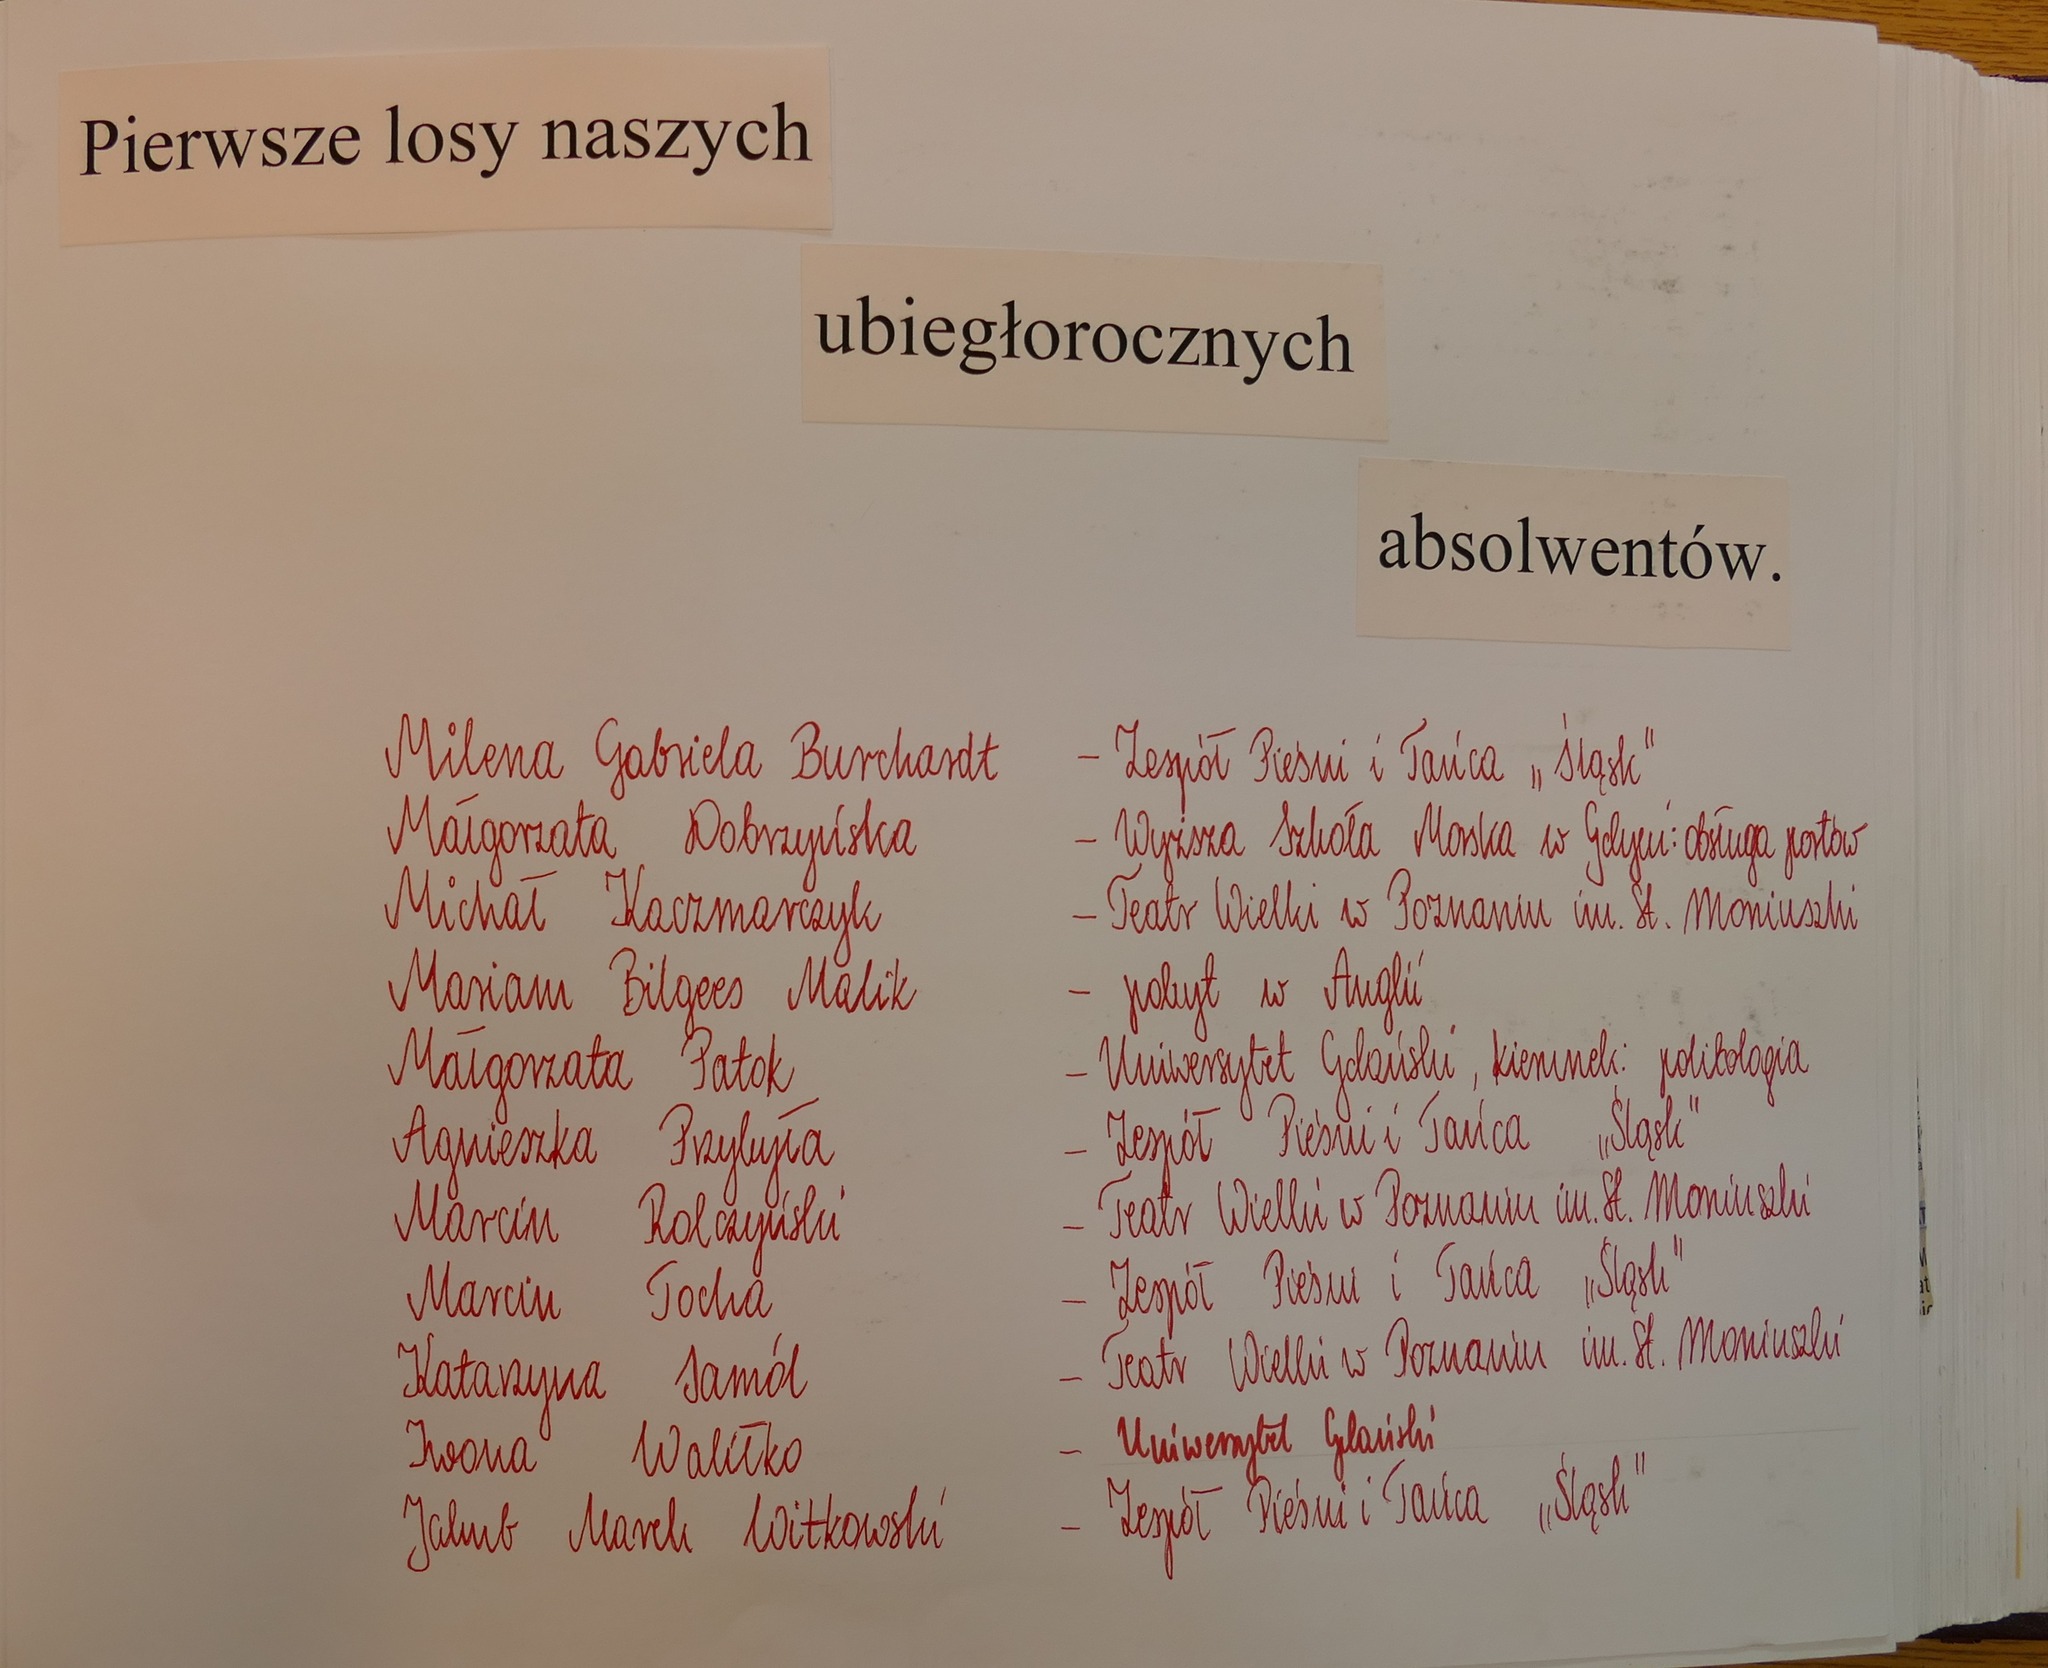 Pierwsze losy naszych
ubiegłorocznych
absolwentów.
Milena Gabriela Burchardt – Zespół Pieśni i Tańca „Śląsk”
Małgorzata Dobrzyńska – Wyższa Szkoła Morska w Gdyni: obsługa portów
Michał Kaczmarczyk – Teatr Wielki w Poznaniu im. St. Moniuszki
Mariam Bilgees Malik – pobyt w Anglii
Małgorzata Patok – Uniwersytet Gdański, kierunek: politologia
Agnieszka Przybyła – Zespół Pieśni i Tańca „Śląsk”
Marcin Rolczyński – Teatr Wielki w Poznaniu im. St. Moniuszki
Marcin Tocha – Zespół Pieśni i Tańca „Śląsk”
Katarzyna Samól – Teatr Wielki w Poznaniu im. St. Moniuszki
Iwona Waliłko – Uniwersytet Gdański
Jakub Marek Witkowski – Zespół Pieśni i Tańca „Śląsk”